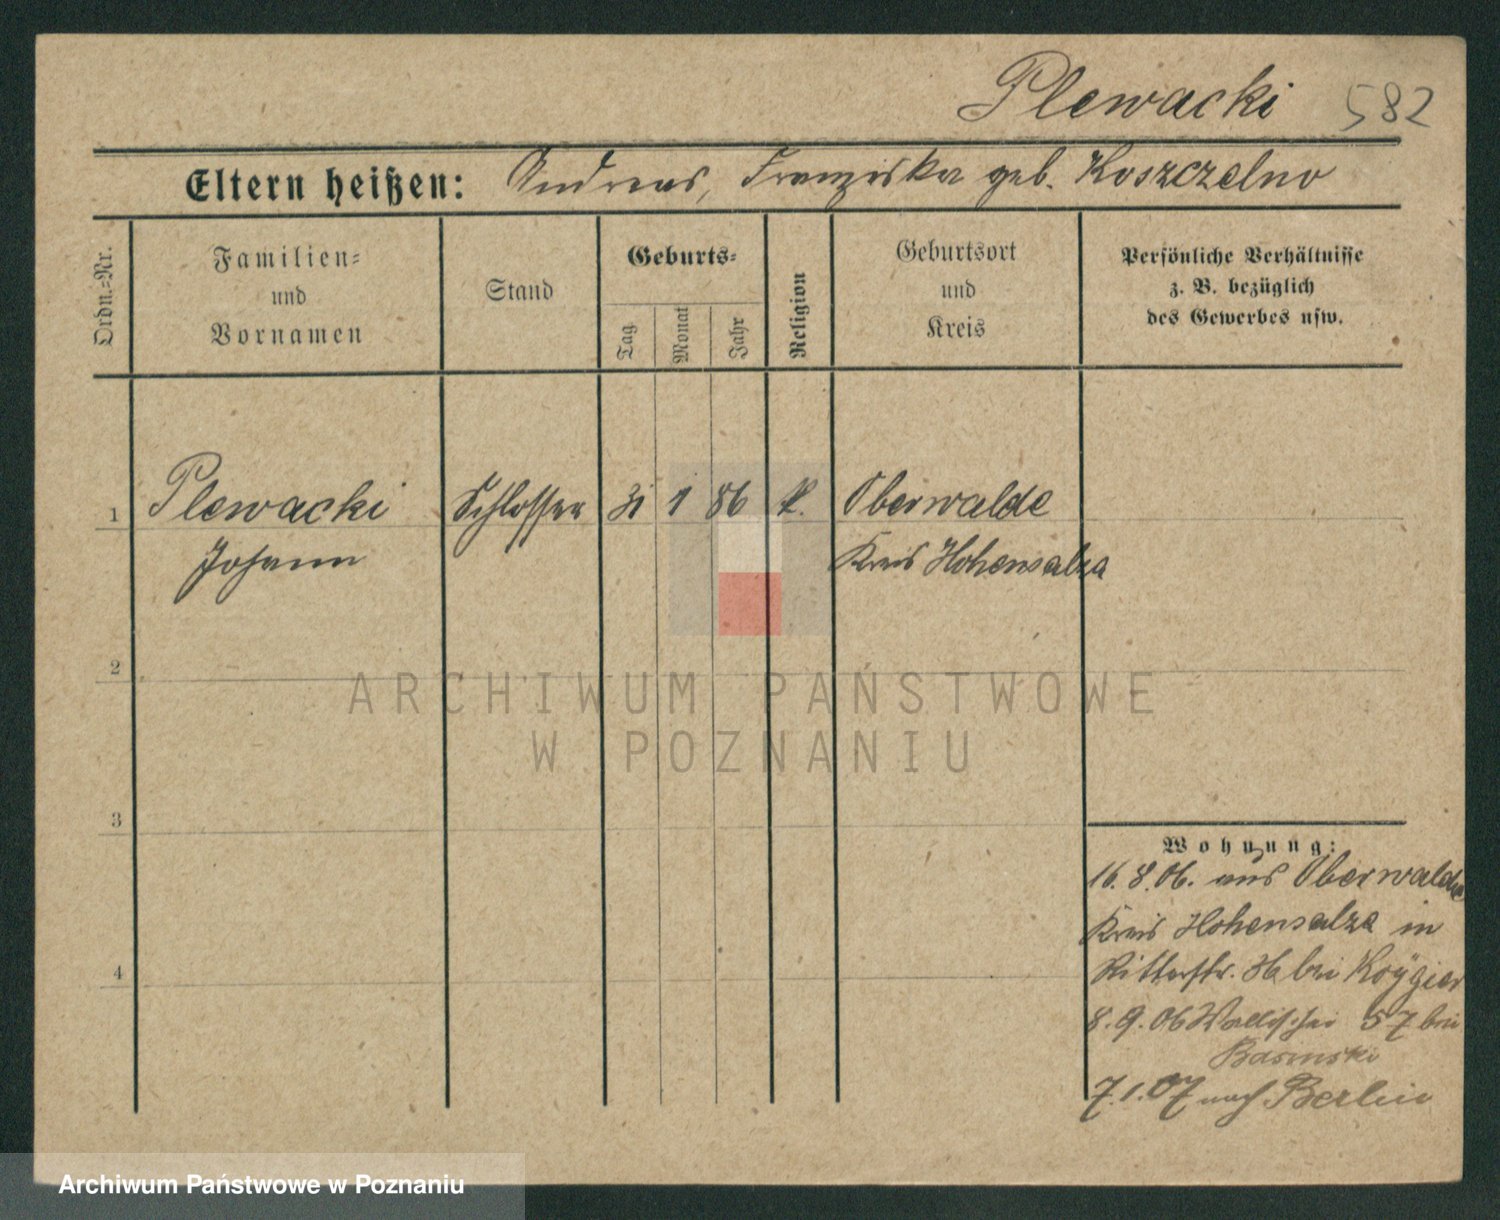 Plewacki 582
Eltern heißen: Andreas, Franziska geb. Koszczelno
Ordn.-Nr.
Familien-
und
Vornamen
Stand
Geburts-
Tag
Monat
Jahr
Religion
Geburtsort
und
Kreis
Persönliche Verhältnisse
z. B. bezüglich
des Gewerbes usw.
1 Plewacki Schlosser 31 1 86 k. Oberwalde
Johann Kreis Hohensalza
2
3
4
Wohnung:
16.8.06. aus Oberwalde
Kreis Hohensalza in
Ritterstr. bei
8.9.06 Wallischei 57 bei
Basinski
7.1.07 nach Berlin
ARCHIWUM PAŃSTWOWE
W POZNANIU
Archiwum Państwowe w Poznaniu